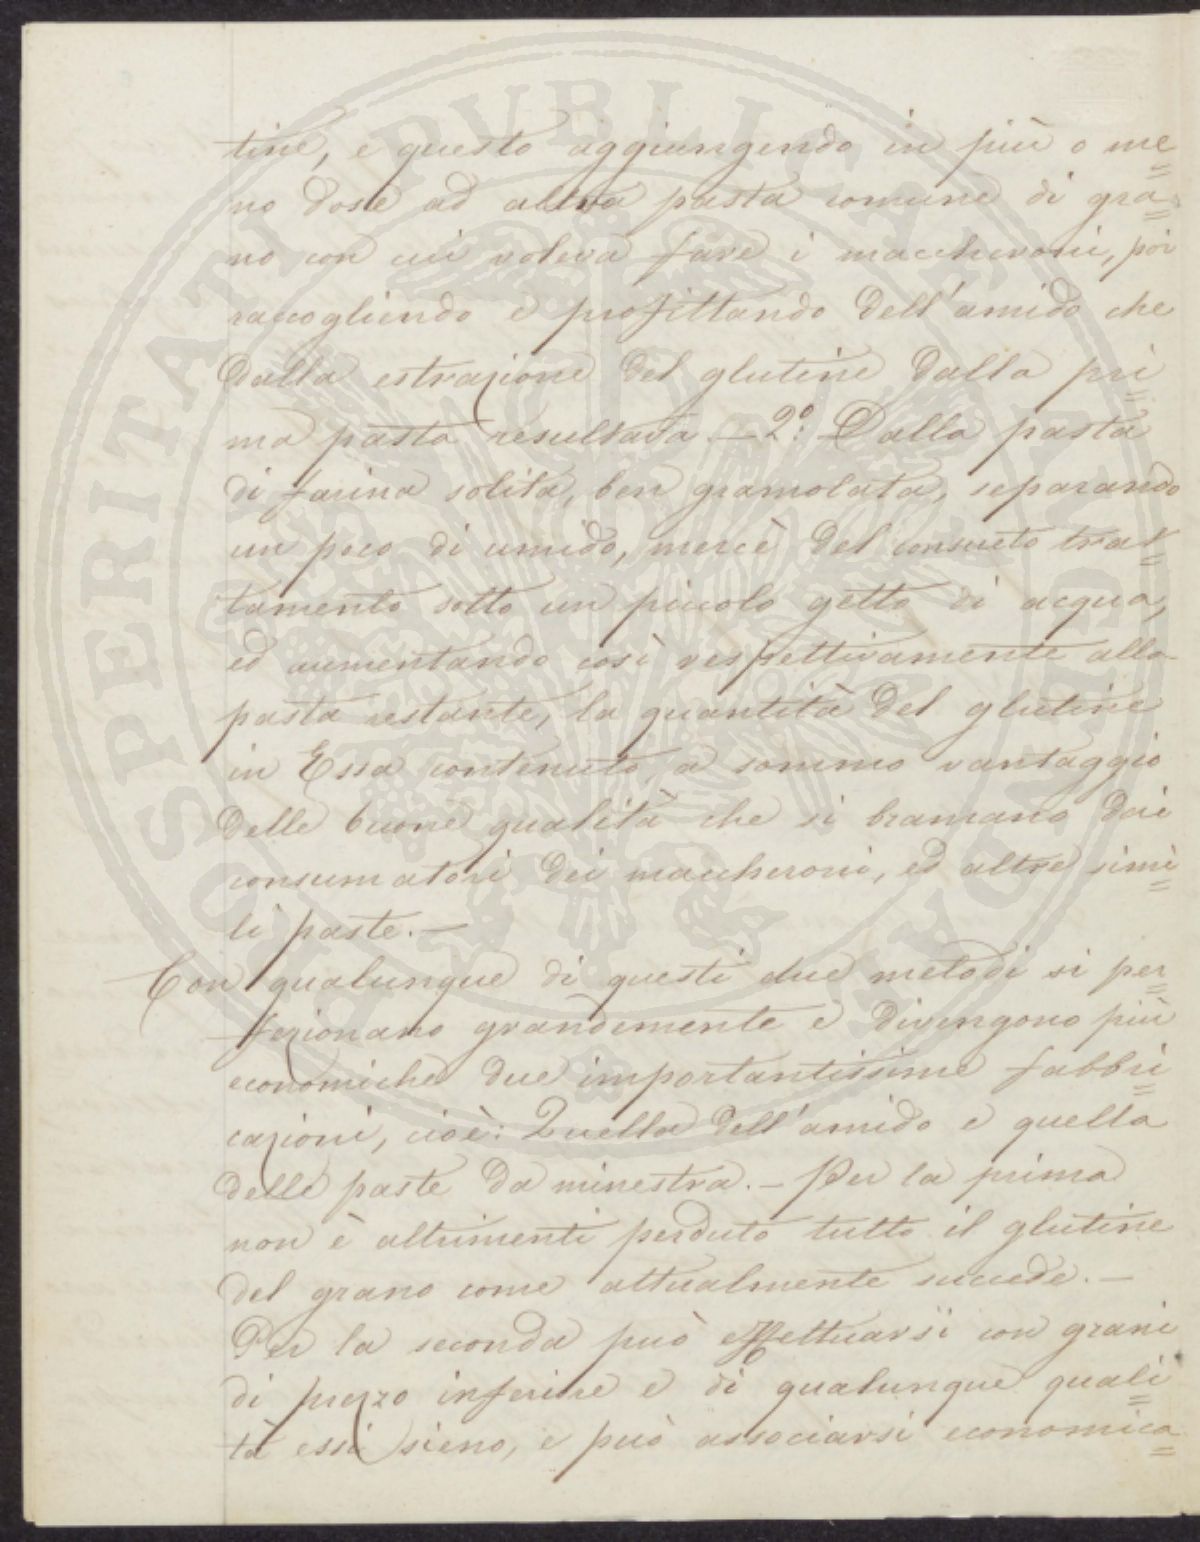 tine, e questo aggiungendo in più o me=
no dose ad altra pasta comune di gra=
no con cui voleva fare i maccheroni, poi
raccogliendo e profittando dell'amido che
dalla estrazione del glutine dalla pri=
ma pasta resultava. — 2°: Dalla pasta
di farina solita, ben gramolata, separando
un poco di amido, mercè del consueto trat=
tamento sotto un piccolo getto di acqua,
ed aumentando così respettivamente alla
pasta restante, la quantità del glutine
in Essa contenuto, a sommo vantaggio
delle buone qualità che si bramano dai
consumatori dei maccheroni, ed altre simi=
li paste. —
Con qualunque di questi due metodi si per=
fezionano grandemente e divengono più
economiche due importantissime fabbri=
cazioni, cioè: Quella dell'amido e quella
delle paste da minestra. — Per la prima
non è altrimenti perduto tutto il glutine
del grano come attualmente succede. —
Per la seconda può effettuarsi con grani
di prezzo inferiore e di qualunque quali=
tà essi sieno, e può associarsi economica=
PVBLICAE
PROSPERITATI